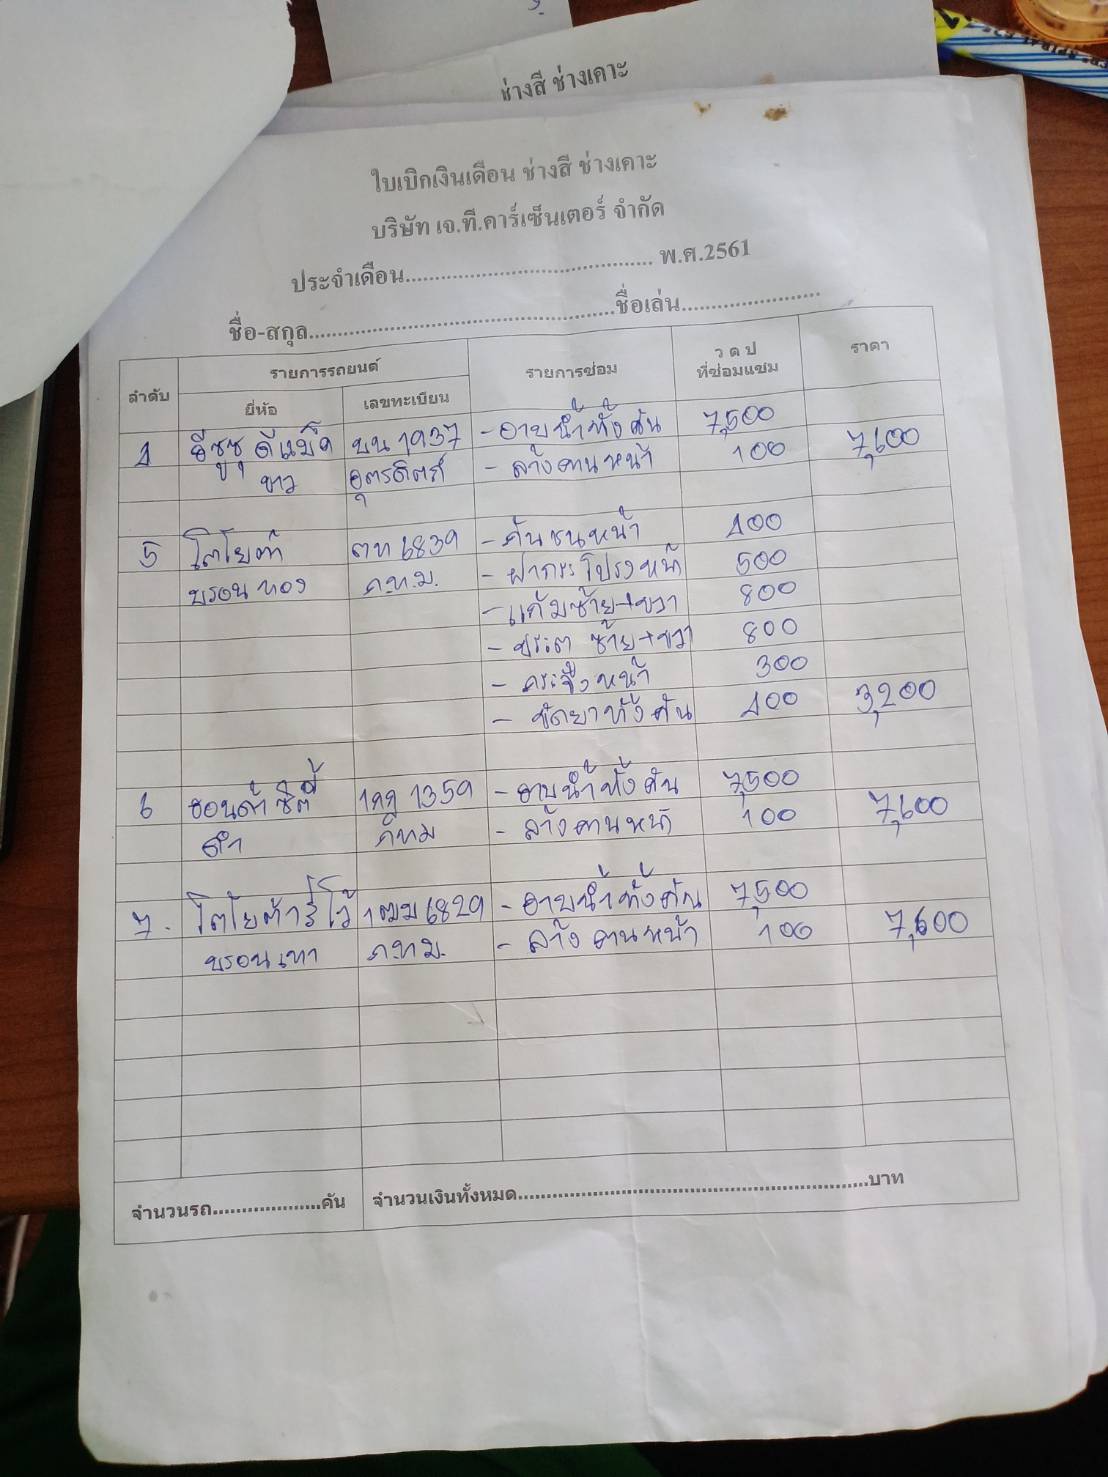 ช่างสี ช่างเคาะ
ใบเบิกเงินเดือน ช่างสี ช่างเคาะ
บริษัท เจ.ที.คาร์เซ็นเตอร์ จำกัด
ประจำเดือน.......................................... พ.ศ.2561
ชื่อ-สกุล....................................................ชื่อเล่น........................
ลำดับ รายการรถยนต์ รายการซ่อม ว ด ป ราคา
ยี่ห้อ เลขทะเบียน ที่ซ่อมแซม
4 อีซูซุ ดีแม็ค บน 1937 - อาบน้ำทั้งคัน 7,500
ขาว อุตรดิตถ์ - ล้างคานหน้า 100 7,600
5 โตโยต้า ตท 6839 - กันชนหน้า 400
บรอนทอง ก.ท.ม. - ฝากระโปรงหน้า 500
- แก้มซ้าย+ขวา 800
- ประตู ซ้าย+ขวา 800
- กระจังหน้า 300
- ขัดยาทั้งคัน 400 3,200
6 ฮอนด้า ซิตี้ 1กฎ 1359 - อาบน้ำทั้งคัน 7,500
ดำ กทม - ล้างคานหน้า 100 7,600
7. โตโยต้ารีโว้ 1ฒม 6829 - อาบน้ำทั้งคัน 7,500
บรอนเทา ก.ท.ม. - ล้างคานหน้า 100 7,600
จำนวนรถ...................คัน จำนวนเงินทั้งหมด..............................................................บาท